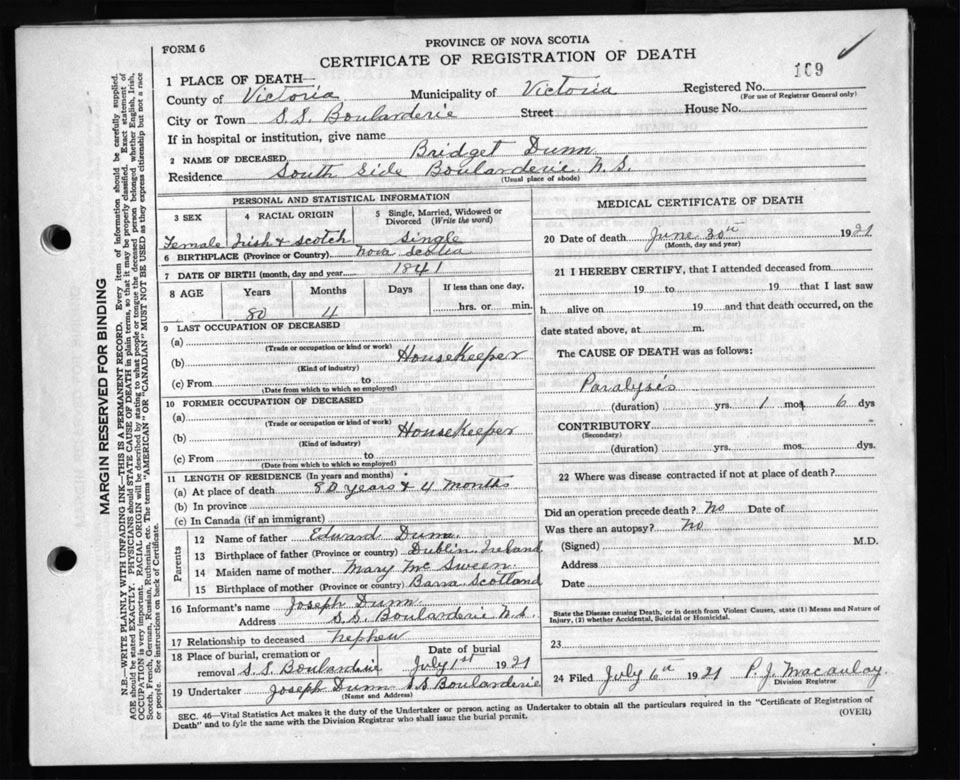 FORM 6
PROVINCE OF NOVA SCOTIA
CERTIFICATE OF REGISTRATION OF DEATH
169
1 PLACE OF DEATH—
County of Victoria Municipality of Victoria Registered No.
(For use of Registrar General only)
City or Town S.S. Boularderie Street House No.
If in hospital or institution, give name
2 NAME OF DECEASED Bridget Dunn
Residence South Side Boularderie N.S.
(Usual place of abode)
PERSONAL AND STATISTICAL INFORMATION
3 SEX 4 RACIAL ORIGIN 5 Single, Married, Widowed or Divorced (Write the word)
Female Irish & Scotch Single
6 BIRTHPLACE (Province or Country) Nova Scotia
7 DATE OF BIRTH (month, day and year) 1841
8 AGE Years Months Days If less than one day,
80 4 hrs. or min.
9 LAST OCCUPATION OF DECEASED
(a)
(Trade or occupation or kind or work)
(b) Housekeeper
(Kind of industry)
(c) From to
(Date from which to which so employed)
10 FORMER OCCUPATION OF DECEASED
(a)
(Trade or occupation or kind or work)
(b) Housekeeper
(Kind of industry)
(c) From to
(Date from which to which so employed)
11 LENGTH OF RESIDENCE (In years and months)
(a) At place of death 80 years & 4 months
(b) In province
(c) In Canada (if an immigrant)
Parents
12 Name of father Edward Dunn
13 Birthplace of father (Province or country) Dublin Ireland
14 Maiden name of mother Mary Mc Sween
15 Birthplace of mother (Province or country) Barra Scotland
16 Informant's name Joseph Dunn
Address S.S. Boularderie N.S.
17 Relationship to deceased nephew
18 Place of burial, cremation or removal S.S. Boularderie Date of burial July 1st 1921
19 Undertaker Joseph Dunn S.S Boularderie
(Name and Address)
MEDICAL CERTIFICATE OF DEATH
20 Date of death June 30th 1921
(Month, day and year)
21 I HEREBY CERTIFY, that I attended deceased from
19 to 19 that I last saw
h alive on 19 and that death occurred, on the
date stated above, at m.
The CAUSE OF DEATH was as follows:
Paralysis
(duration) yrs. 1 mos. 6 dys
CONTRIBUTORY
(Secondary)
(duration) yrs. mos. dys.
22 Where was disease contracted if not at place of death?
Did an operation precede death? No Date of
Was there an autopsy? No
(Signed) M.D.
Address
Date
State the Disease causing Death, or in death from Violent Causes, state (1) Means and Nature of
Injury, (2) whether Accidental, Suicidal or Homicidal.
23
24 Filed July 6th 1921 P. J. Macaulay
Division Registrar
SEC. 46—Vital Statistics Act makes it the duty of the Undertaker or person acting as Undertaker to obtain all the particulars required in the "Certificate of Registration of
Death" and to fyle the same with the Division Registrar who shall issue the burial permit.
(OVER)
MARGIN RESERVED FOR BINDING
N.B.—WRITE PLAINLY WITH UNFADING INK—THIS IS A PERMANENT RECORD. Every item of information should be carefully supplied.
AGE should be stated EXACTLY. PHYSICIANS should STATE CAUSE OF DEATH in plain terms, so that it may be properly classified. Exact statement of
OCCUPATION is very important. RACIAL ORIGIN will be described by stating to what people or tongue the deceased person belonged whether English, Irish,
Scotch, French, German, Russian, Ruthenian, etc. The terms "AMERICAN" OR "CANADIAN" MUST NOT BE USED as they express citizenship but not a race
or people. See instructions on back of Certificate.